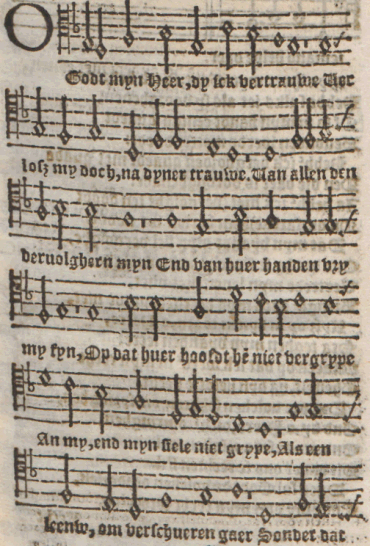 O Godt myn Heer, dy ick vertrauwe Ver
losz my doch, na dyner trauwe. Van allen den
veruolghern myn End van huer handen vry
my syn, Op dat huer hoofdt hē niet vergrype
An my, end myn siele niet grype, Als een
leenw, om verschueren gaer Sonder dat